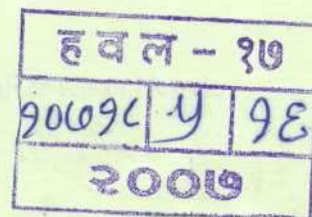 हवल - १७
१०७१८ ५ १६
२००७